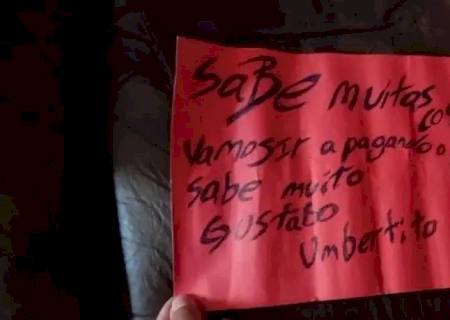 SaBe muitas
co
Vamosir apagando o
Sabe muito
Gustabo
Umbertito